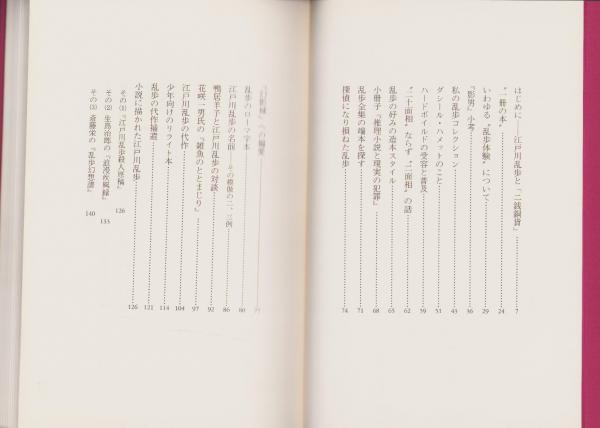 はじめに――江戸川乱歩と「二銭銅貨」 7
〝一冊の本〟 24
いわゆる〝乱歩体験〟について 29
『影男』小考 36
私の乱歩コレクション 43
ダシール・ハメットのこと 51
ハードボイルドの受容と普及 59
〝二十面相〟ならず〝二面相〟の話 62
乱歩の好みの造本スタイル 65
小冊子『推理小説と現実の犯罪』 68
乱歩全集の端本を探す 71
探偵になり損ねた乱歩 74
への偏愛 77
乱歩のローマ字本 80
江戸川乱歩の名前――その模倣の二、三例 86
鴨居羊子と江戸川乱歩の対談 92
花咲一男氏の『雑魚のととまじり』 97
江戸川乱歩の代作 104
少年向けのリライト本 114
乱歩の代作補遺 121
小説に描かれた江戸川乱歩 126
その(1)『江戸川乱歩殺人原稿』 126
その(2) 生島治郎の『浪漫疾風録』 133
その(3) 斎藤栄の『乱歩幻想譜』 140